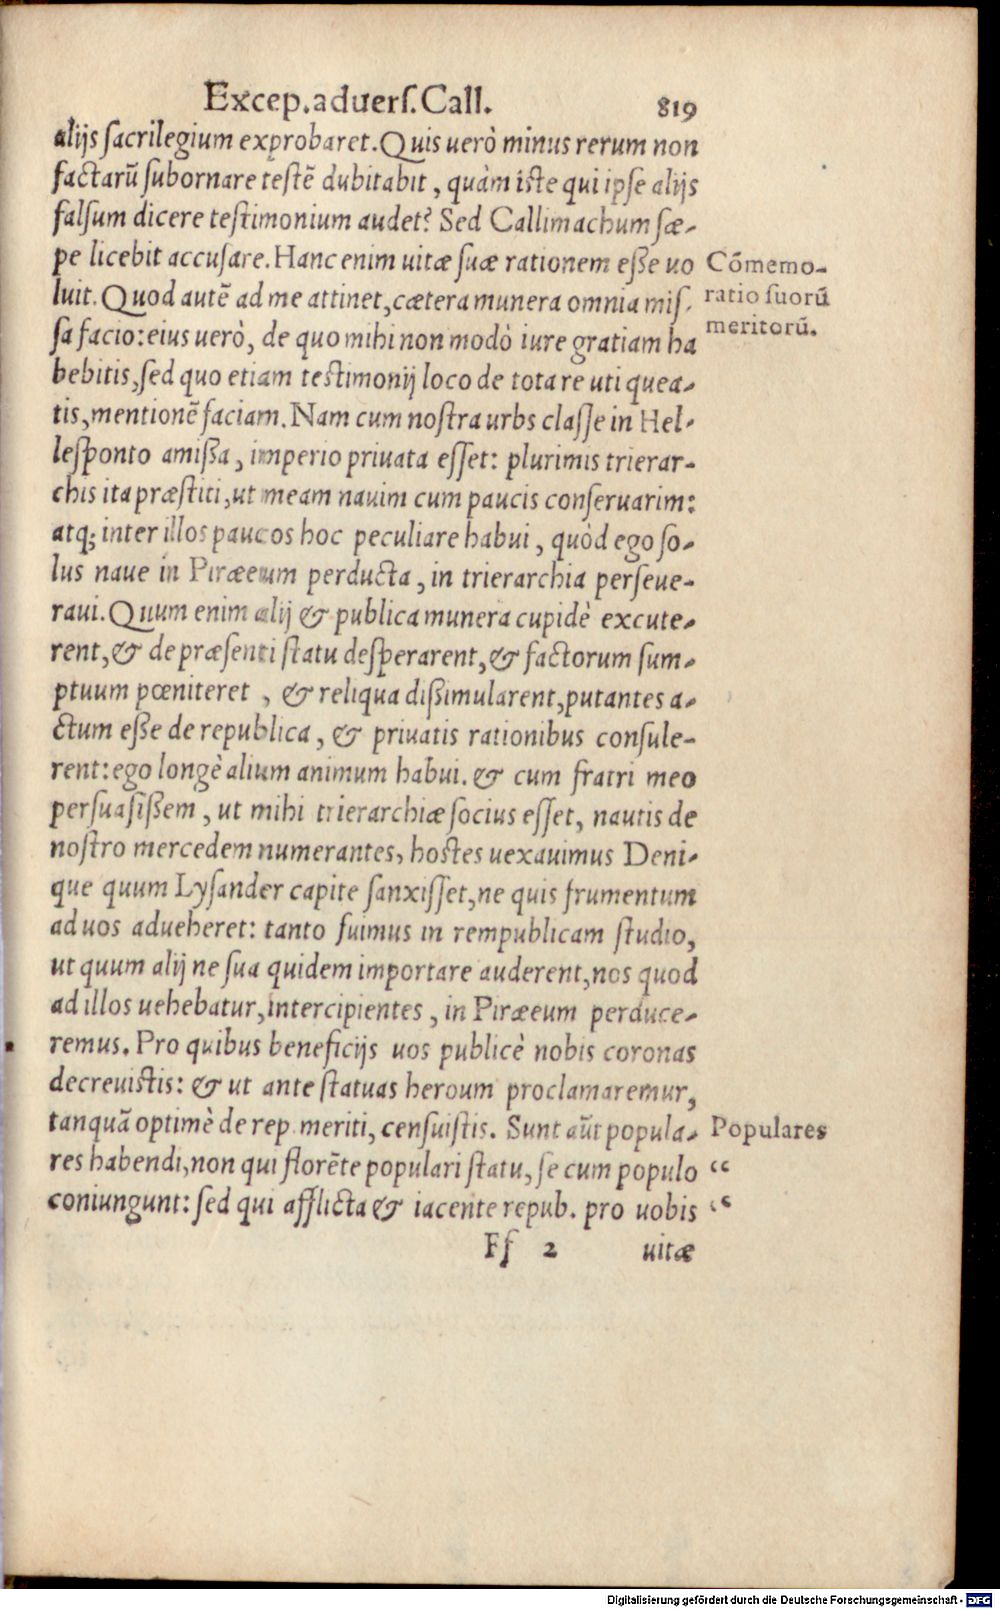 Excep.aduerſ.Call. 819
alijs ſacrilegium exprobaret. Quis uerò minus rerum non
factarū ſubornare teſtē dubitabit, quàm iſte qui ipſe alijs
falſum dicere teſtimonium audet? Sed Callimachum ſæ-
pe licebit accuſare. Hanc enim uitæ ſuæ rationem eſſe uo
Cōmemo-
luit. Quod autē ad me attinet, cætera munera omnia miſ.
ratio ſuorū
ſa facio: eius uerò, de quo mihi non modò iure gratiam ha
meritorū.
bebitis, ſed quo etiam teſtimonij loco de tota re utiquea-
tis, mentionē faciam. Nam cum noſtra urbs claſſe in Hel-
leſponto amiſſa, imperio priuata eſſet: plurimis trierar-
chis ita præſtiti, ut meam nauim cum paucis conſeruarim:
atq; inter illos paucos hoc peculiare habui, quòd ego ſo-
lus naue in Piræeum perducta, in trierarchia perſeue-
raui. Quum enim alij & publica munera cupidè excute-
rent, & de præſenti ſtatu deſperarent, & factorum ſum-
ptuum pœniteret, & reliqua diſsimularent, putantes a-
ctum eſſe de republica, & priuatis rationibus conſule-
rent: ego longè alium animum habui. & cum fratri meo
perſuaſiſſem, ut mihi trierarchiæ ſocius eſſet, nautis de
noſtro mercedem numerantes, hoſtes uexauimus Deni-
que quum Lyſander capite ſanxiſſet, ne quis frumentum
ad uos adueheret: tanto fuimus in rempublicam ſtudio,
ut quum alij ne ſua quidem importare auderent, nos quod
ad illos uehebatur, intercipientes, in Piræeum perduce-
remus. Pro quibus beneficijs uos publicè nobis coronas
decreuiſtis: & ut ante ſtatuas heroum proclamaremur,
tanquā optimè de rep. meriti, cenſuiſtis. Sunt aūt popula-
Populares
res habendi, non qui florēte populari ſtatu, ſe cum populo
“
coniungunt: ſed qui afflicta & iacente repub. pro uobis
“
Ff 2 uitæ
Digitalisierung gefördert durch die Deutsche Forschungsgemeinschaft - DFG